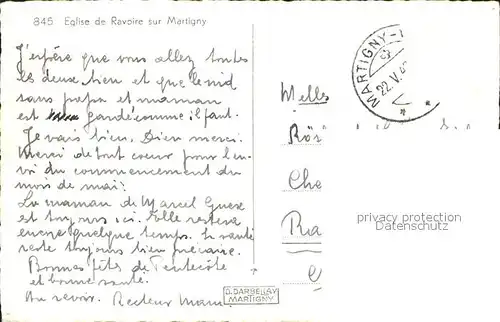 845 Eglise de Ravoire sur Martigny
J'espère que vous allez toutes
les deux bien et que le nid
sans papa et maman
est gardé comme il faut.
Je vais bien, Dieu merci.
Merci de tout coeur pour l'en-
voi du commencement du
mois de mai.
La maman de Marcel Guex
est toujours ici. Elle restera
encore quelque temps. Sa santé
reste toujours bien précaire.
Bonnes fêtes de Pentecôte
et bonne santé.
Au revoir. Recteur
D. DARBELLAY
MARTIGNY
MARTIGNY-
22.V.
Melles
Rö
Che
Ra
privacy protection
Datenschutz